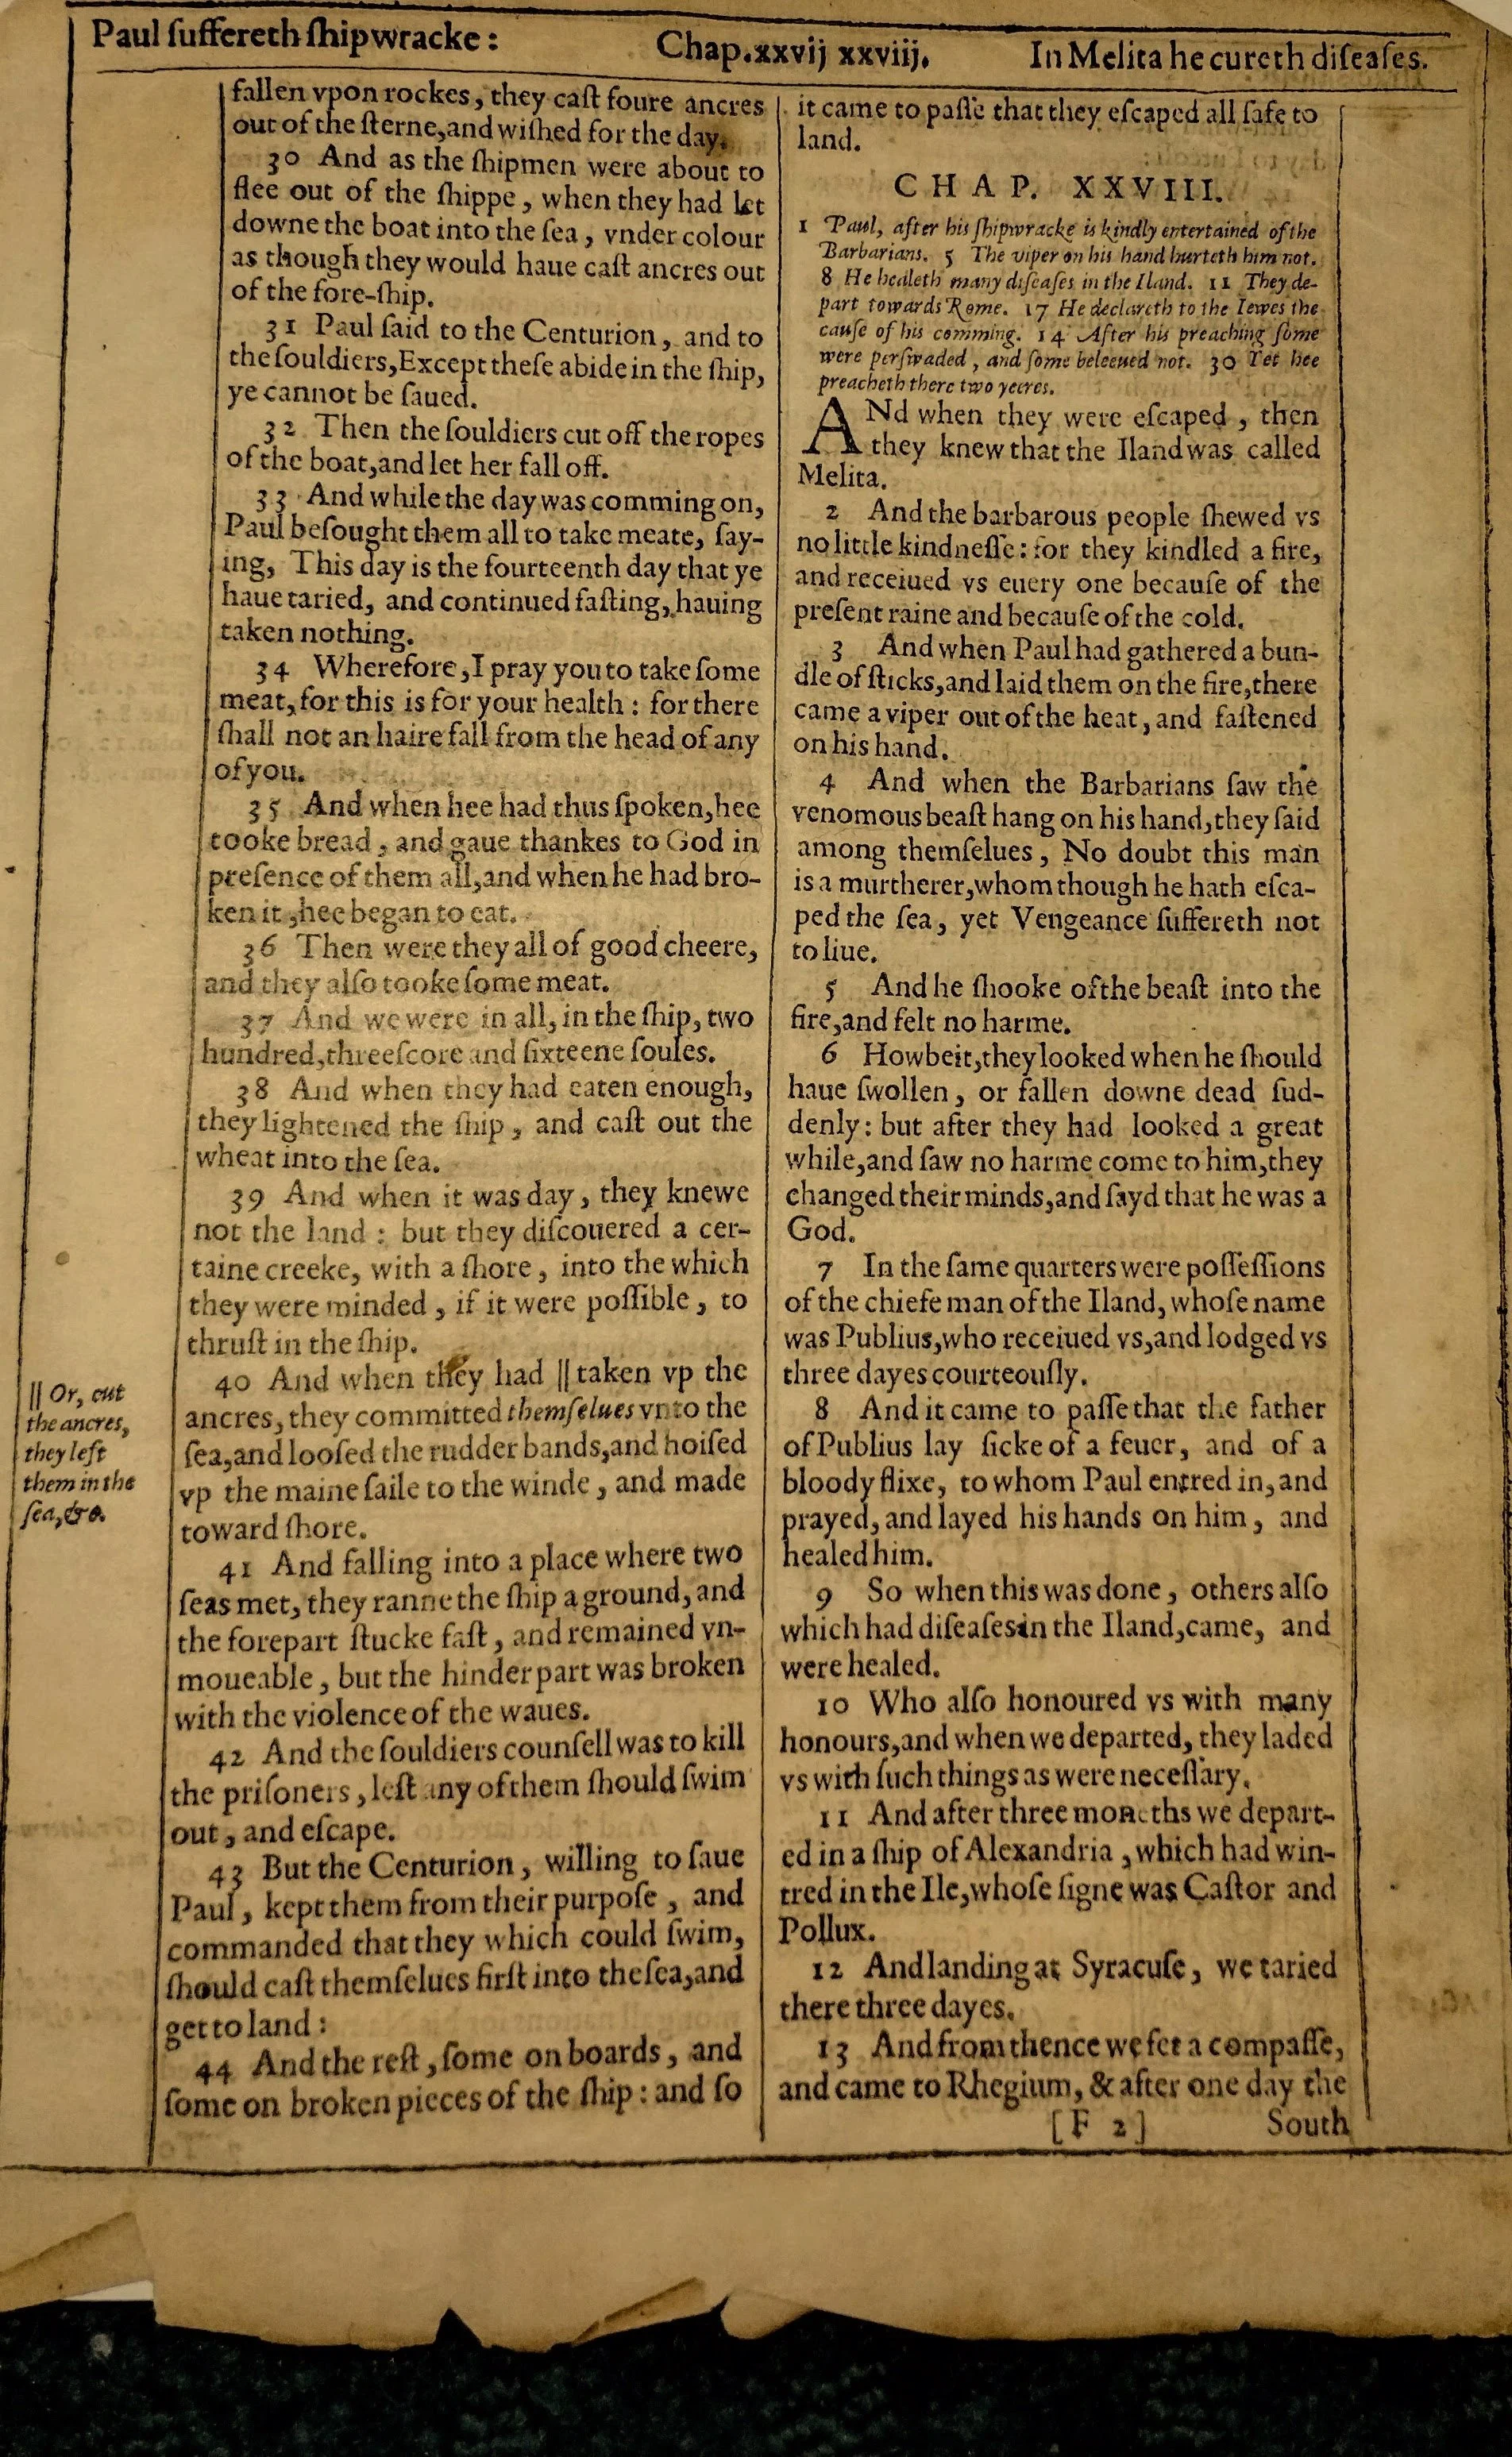 Paul ſuffereth ſhipwracke: Chap.xxvij xxviij. In Melita he cureth diſeaſes.
fallen vpon rockes, they caſt foure ancres
out of the ſterne,and wiſhed for the day.
30 And as the ſhipmen were about to
flee out of the ſhippe, when they had let
downe the boat into the ſea, vnder colour
as though they would haue caſt ancres out
of the fore-ſhip.
31 Paul ſaid to the Centurion, and to
the ſouldiers,Except theſe abide in the ſhip,
ye cannot be ſaued.
32 Then the ſouldiers cut off the ropes
of the boat,and let her fall off.
33 And while the day was comming on,
Paul beſought them all to take meate, ſay-
ing, This day is the fourteenth day that ye
haue taried, and continued faſting, hauing
taken nothing.
34 Wherefore,I pray you to take ſome
meat,for this is for your health: for there
ſhall not an haire fall from the head of any
of you.
35 And when hee had thus ſpoken,hee
tooke bread, and gaue thankes to God in
preſence of them all,and when he had bro-
ken it,hee began to eat.
36 Then were they all of good cheere,
and they alſo tooke ſome meat.
37 And we were in all, in the ſhip, two
hundred,threeſcore and ſixteene ſoules.
38 And when they had eaten enough,
they lightened the ſhip, and caſt out the
wheat into the ſea.
39 And when it was day, they knewe
not the land: but they diſcouered a cer-
taine creeke, with a ſhore, into the which
they were minded, if it were poſſible, to
thruſt in the ſhip.
40 And when they had || taken vp the
ancres, they committed themſelues vnto the
ſea,and looſed the rudder bands,and hoiſed
vp the maine ſaile to the winde, and made
toward ſhore.
41 And falling into a place where two
ſeas met, they ranne the ſhip a ground, and
the forepart ſtucke faſt, and remained vn-
moueable, but the hinder part was broken
with the violence of the waues.
42 And the ſouldiers counſell was to kill
the priſoners, leſt any of them ſhould ſwim
out, and eſcape.
43 But the Centurion, willing to ſaue
Paul, kept them from their purpoſe, and
commanded that they which could ſwim,
ſhould caſt themſelues firſt into the ſea,and
get to land:
44 And the reſt, ſome on boards, and
ſome on broken pieces of the ſhip: and ſo
|| Or, cut
the ancres,
they left
them in the
ſea,&c.
it came to paſſe that they eſcaped all ſafe to
land.
CHAP. XXVIII.
1 Paul, after his ſhipwracke is kindly entertained of the
Barbarians. 5 The viper on his hand hurteth him not.
8 He healeth many diſeaſes in the Iland. 11 They de-
part towards Rome. 17 He declareth to the Iewes the
cauſe of his comming. 14 After his preaching ſome
were perſwaded, and ſome beleeued not. 30 Yet hee
preacheth there two yeeres.
ANd when they were eſcaped, then
they knew that the Iland was called
Melita.
2 And the barbarous people ſhewed vs
no little kindneſſe: for they kindled a fire,
and receiued vs euery one becauſe of the
preſent raine and becauſe of the cold.
3 And when Paul had gathered a bun-
dle of ſticks,and laid them on the fire,there
came a viper out of the heat, and faſtened
on his hand.
4 And when the Barbarians ſaw the
venomous beaſt hang on his hand,they ſaid
among themſelues, No doubt this man
is a murtherer,whom though he hath eſca-
ped the ſea, yet Vengeance ſuffereth not
to liue.
5 And he ſhooke of the beaſt into the
fire,and felt no harme.
6 Howbeit,they looked when he ſhould
haue ſwollen, or fallen downe dead ſud-
denly: but after they had looked a great
while,and ſaw no harme come to him,they
changed their minds,and ſayd that he was a
God.
7 In the ſame quarters were poſſeſſions
of the chiefe man of the Iland, whoſe name
was Publius,who receiued vs,and lodged vs
three dayes courteouſly.
8 And it came to paſſe that the father
of Publius lay ſicke of a feuer, and of a
bloody flixe, to whom Paul entred in,and
prayed, and layed his hands on him, and
healed him.
9 So when this was done, others alſo
which had diſeaſes in the Iland,came, and
were healed.
10 Who alſo honoured vs with many
honours,and when we departed, they laded
vs with ſuch things as were neceſſary.
11 And after three moneths we depart-
ed in a ſhip of Alexandria, which had win-
tred in the Ile,whoſe ſigne was Caſtor and
Pollux.
12 And landing at Syracuſe, we taried
there three dayes.
13 And from thence we fet a compaſſe,
and came to Rhegium, & after one day the
[F 2] South